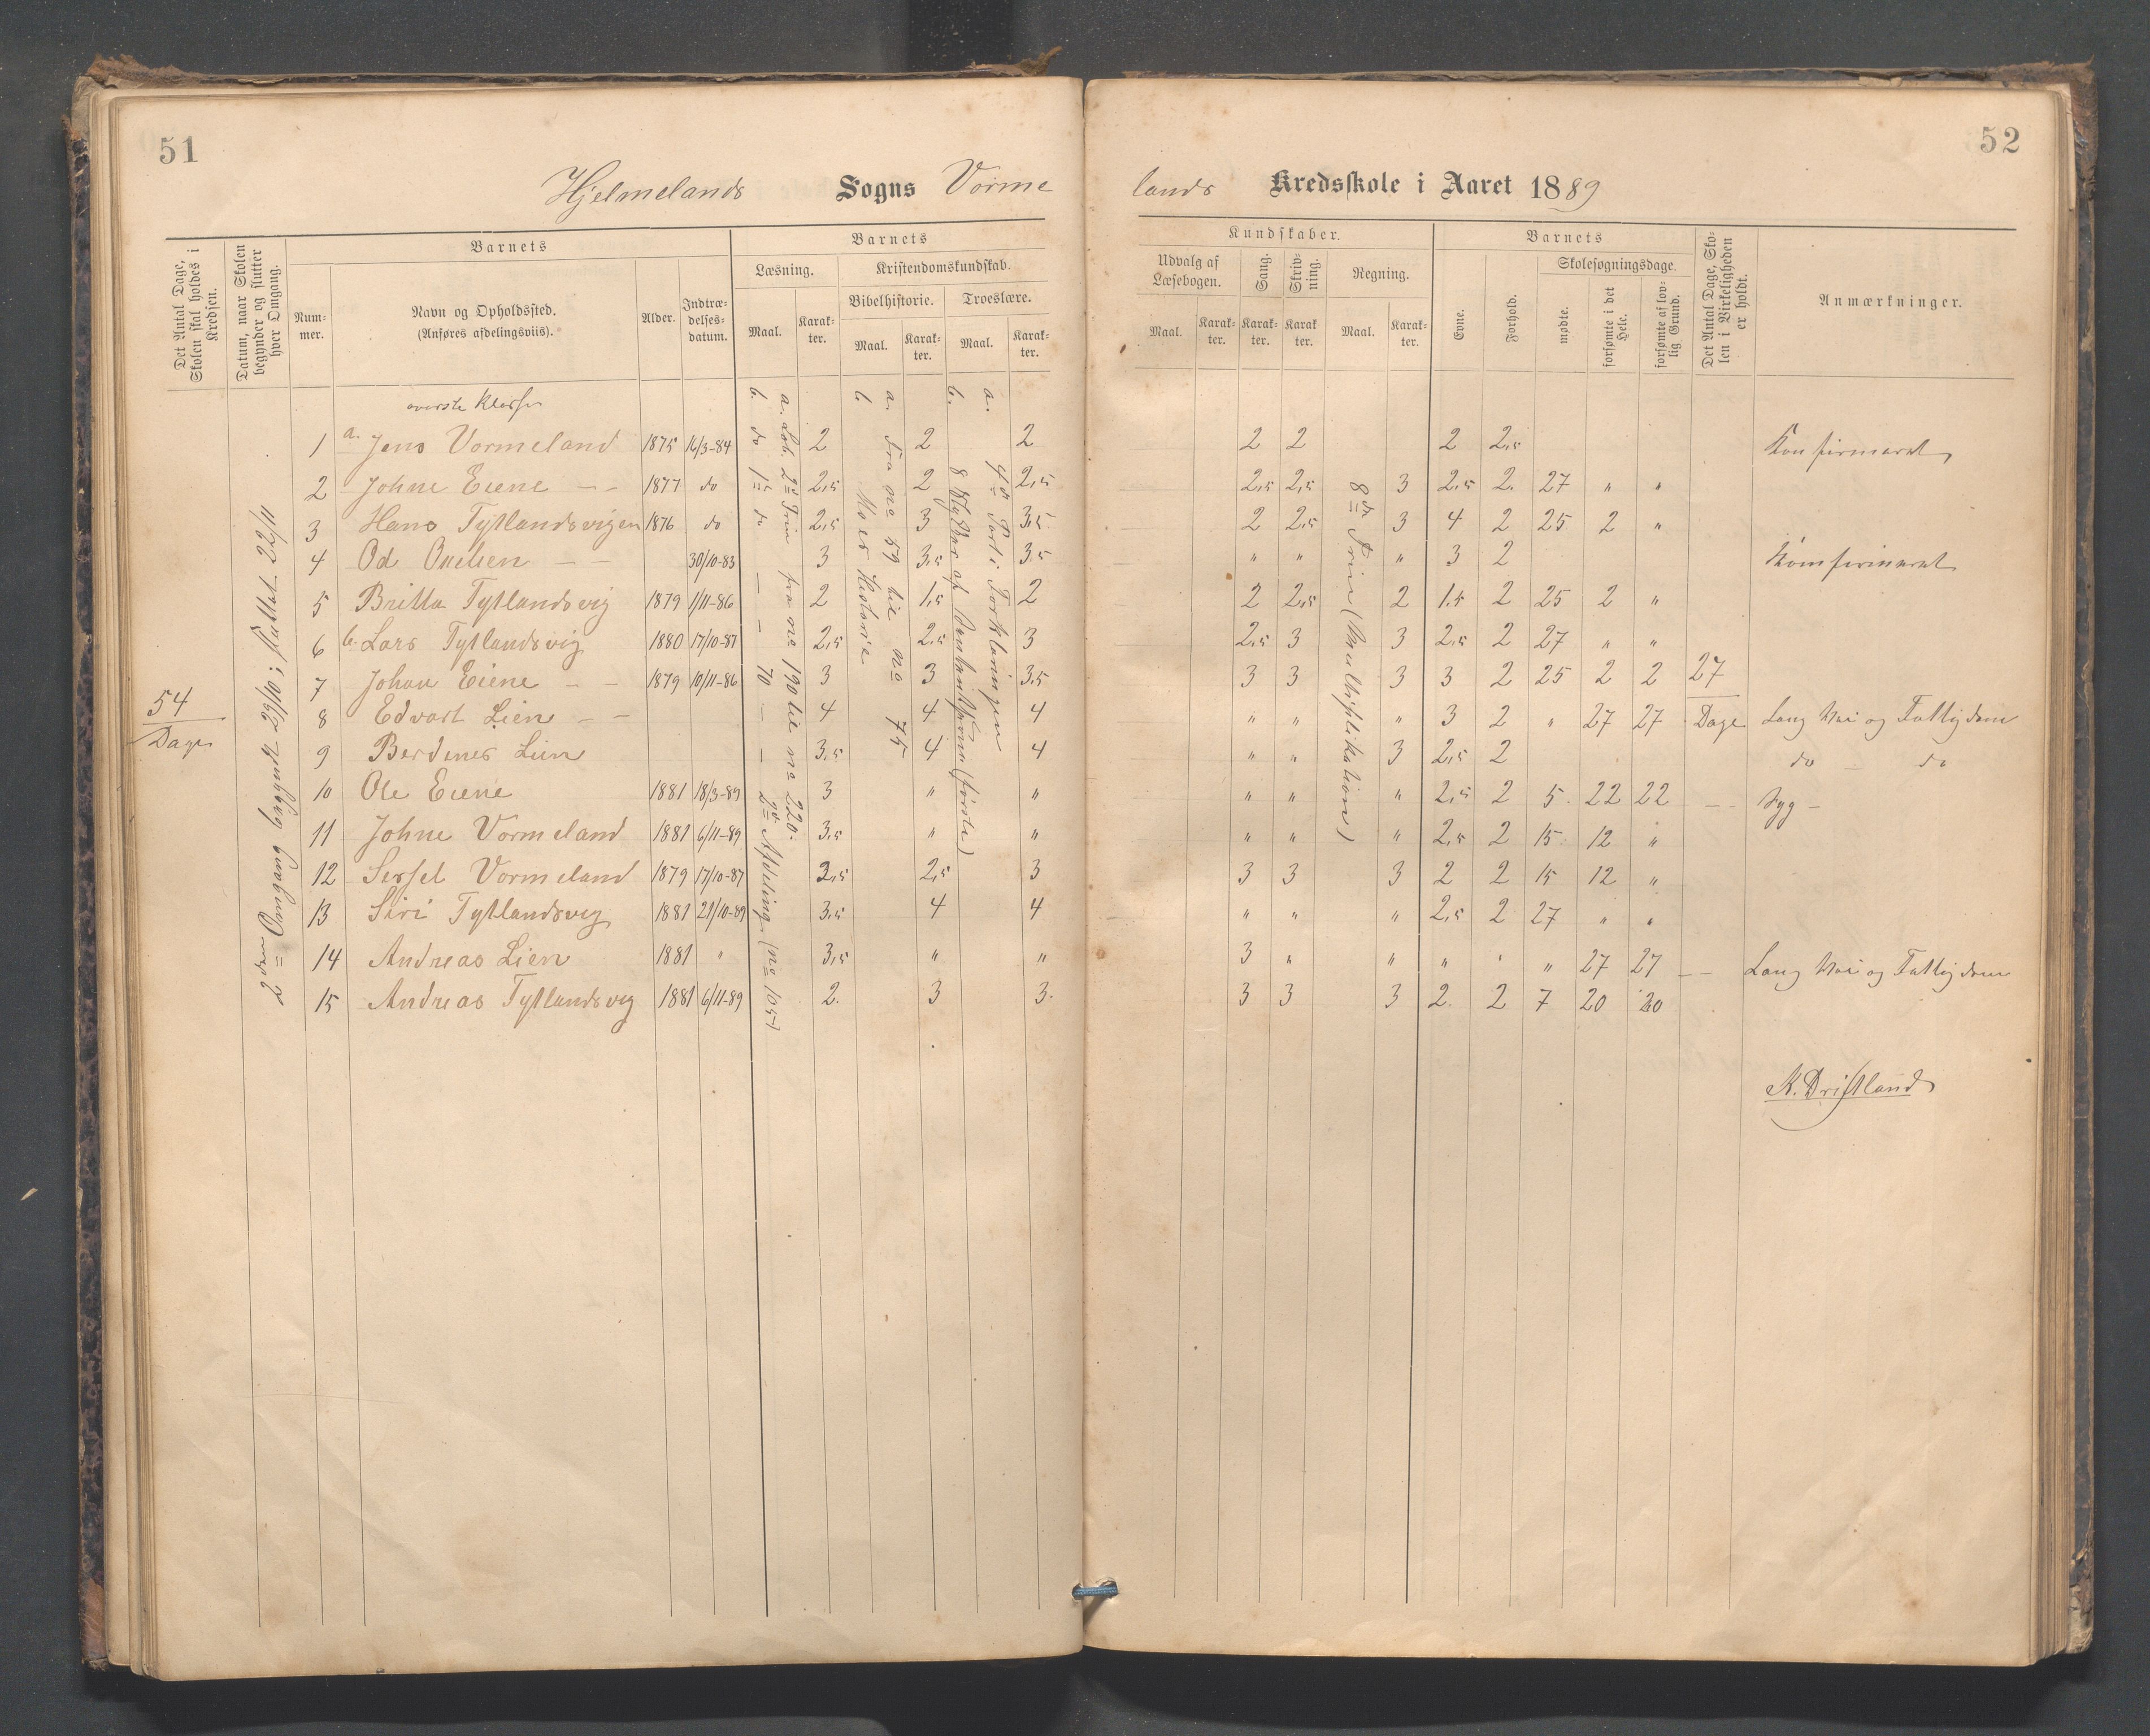 51
52
Hjelmelands Sogns Vorme
lands Kredsskole i Aaret 1889
Det Antal Dage, Skolen skal holdes i Kredsen.
Datum, naar Skolen begynder og slutter hver Omgang.
Barnets
Nummer.
Navn og Opholdssted.
(Anføres afdelingsviis).
Alder.
Indtrædelsesdatum.
Barnets
Læsning.
Maal.
Karakter.
Kristendomskundskab.
Bibelhistorie.
Maal.
Karakter.
Troeslære.
Maal.
Karakter.
Kundskaber.
Udvalg af Læsebogen.
Maal.
Karakter.
Sang.
Karakter.
Skrivning.
Karakter.
Regning.
Maal.
Karakter.
Barnets
Evne.
Forhold.
Skolesøgningsdage.
mødte.
forsømte i det Hele.
forsømte af lovlig Grund.
Det Antal Dage, Skolen i Virkeligheden er holdt.
Anmærkninger.
54
Dage
2den Omgang begyndt 29/10; sluttet 22/11
øverste Klasse
a. Lb. 2d Trin fra no 190 til no 220.
b. do 1ste do — — 70 — — 2d Afdeling (no 105)
a. Fra no 59 til no 75
b.
a. 4de Part i Forklaringen
b.
8de Trin (Multiplikation)
1 a. Jens Vormeland 1875 16/3-84 2 2 2 2 2 2 2,5 Konfirmeret
2 Johne Eiene — — 1877 do 2,5 2 2,5 2,5 2,5 3 2,5 2. 27 " "
3 Hans Tytlandsvigen 1876 do 2,5 3 3,5 2 2,5 3 4 2 25 2 "
4 Od — — 30/10-83 3 3,5 3,5 " " " 3 2 Komfirmeret
5 Britta Tytlandsvig 1879 1/11-86 2 1,5 2 2 2,5 2 1.5 2 25 2 "
6 b. Lars Tytlandsvig 1880 17/10-87 2,5 2,5 3 2,5 3 3 2,5 2 27 " "
7 Johan Eiene — — 1879 10/11-86 3 3 3.5 3 3 3 3 2 25 2 2 27
8 Edvart Lien — — 4 4 4 " " " 3 2 " 27 27 Dage Lang Vei og Fattigdom
9 Berdines Lien 3,5 4 4 " " 3 2,5 2 do — do
10 Ole Eiene 1881 18/3-89 3 " " " " " 2,5 2 5. 22 22 — — Syg —
11 Johne Vormeland 1881 6/11-89 3,5 " " " " " 2,5 2 15 12 "
12 Sersel Vormeland 1879 17/10-87 2,5 2,5 3 3 3 3 2 2 15 12 "
13 Siri Tytlandsvig 1881 21/10-89 3,5 4 4 " " " 2,5 2 27 " "
14 Andreas Lien 1881 " 3,5 " " 3 " " " " " 27 27 — — Lang Vei og Fattigdom
15 Andreas Tytlandsvig 1881 6/11-89 2. 3 3. 3 3 3 2. 2 7 20 20
K. Driftland